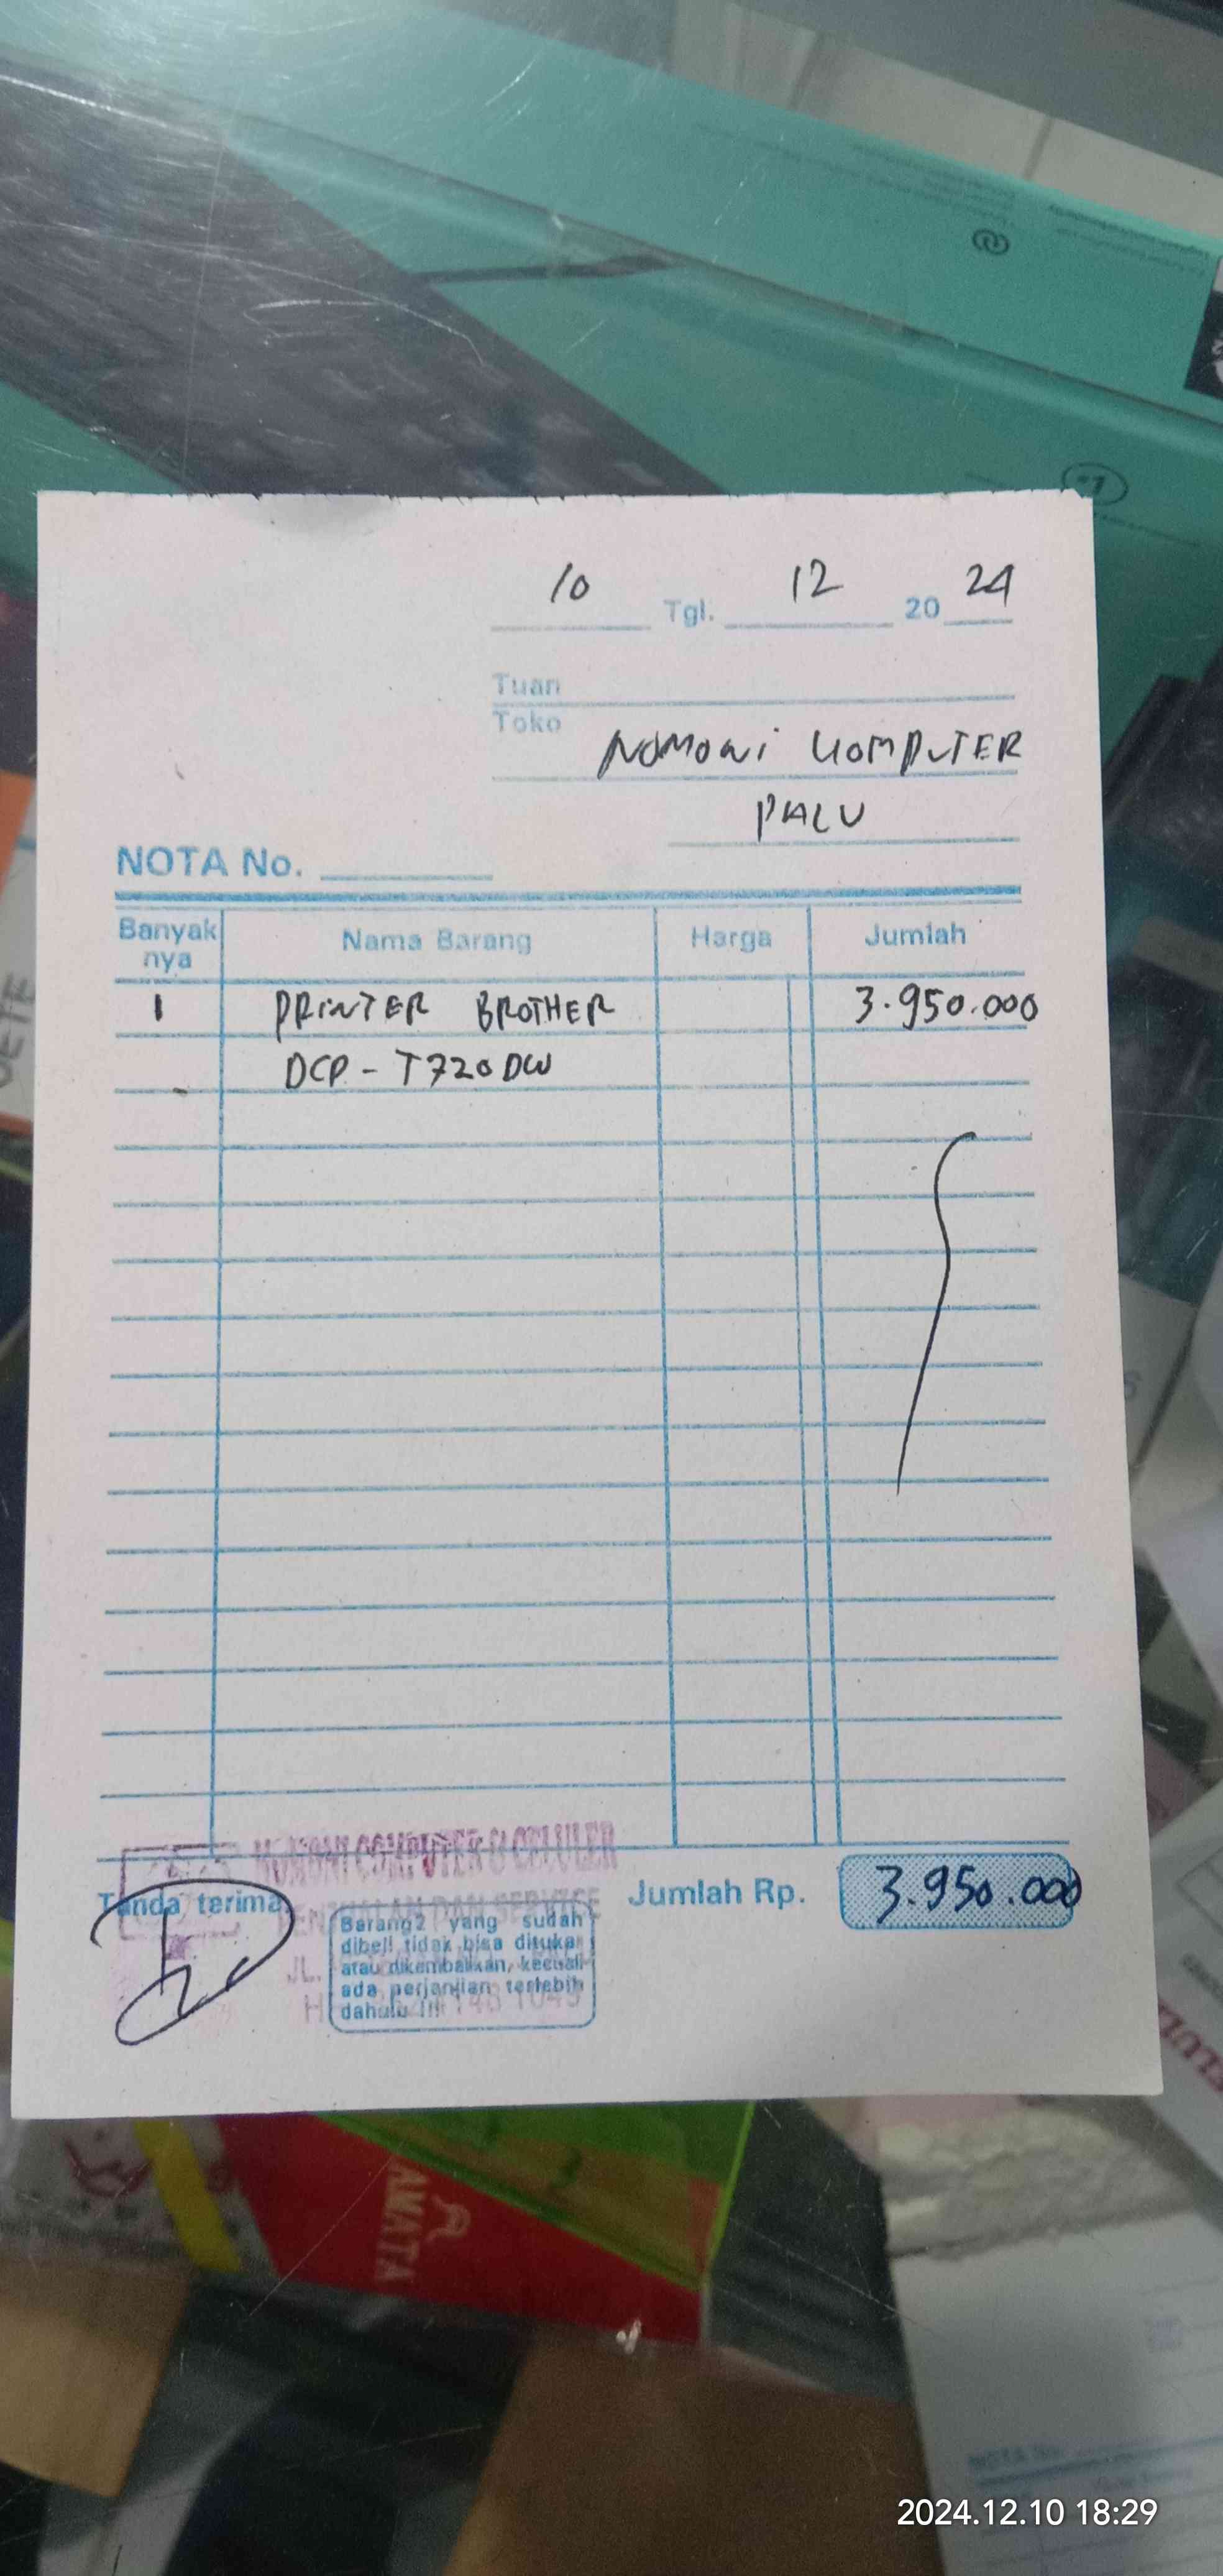 10 Tgl. 12 20 24
Tuan
Toko
NOMONI KOMPUTER
PALU
NOTA No.
Banyak nya Nama Barang Harga Jumlah
1 PRINTER BROTHER 3.950.000
DCP - T720DW
NOMONI COMPUTER & CELULER
Tanda terima Jumlah Rp. 3.950.000
Barang2 yang sudah
dibeli tidak bisa ditukar
atau dikembalikan, kecuali
ada perjanjian terlebih
dahulu !!!
AMATA
2024.12.10 18:29